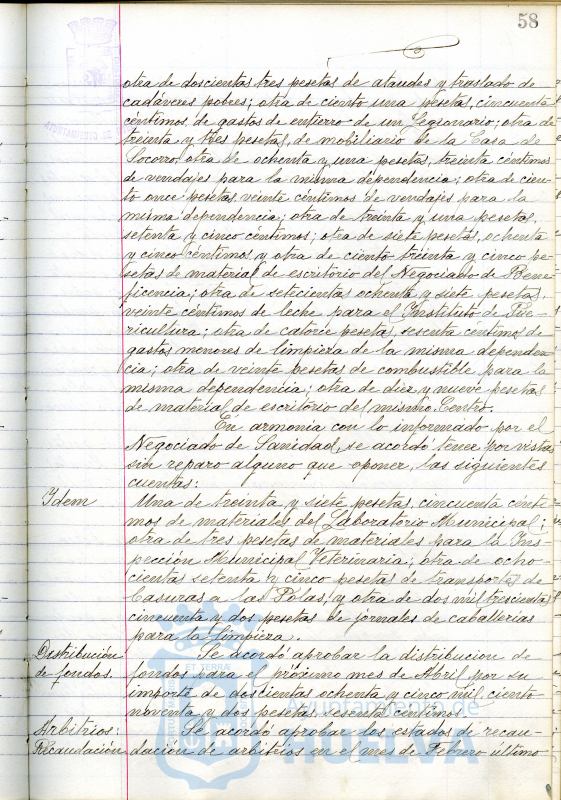 58
otra de doscientas tres pesetas de ataudes y traslado de
cadáveres pobres; otra de ciento una pesetas, cincuenta
céntimos, de gastos de entierro de un Legionario; otra de
treinta y tres pesetas, de mobiliario de la Casa de
Socorro; otra de ochenta y una pesetas, treinta céntimos
de vendajes para la misma dependencia; otra de cien-
to once pesetas, veinte céntimos de vendajes para la
misma dependencia; otra de treinta y una pesetas,
setenta y cinco céntimos; otra de siete pesetas, ochenta
y cinco céntimos y otra de ciento treinta y cinco pe-
setas de material de escritorio del Negociado de Bene-
ficencia; otra de setecientas ochenta y siete pesetas,
veinte céntimos de leche para el Instituto de Pue-
ricultura; otra de catorce pesetas, sesenta céntimos de
gastos menores de limpieza de la misma dependen-
cia; otra de veinte pesetas de combustible para la
misma dependencia; otra de diez y nueve pesetas
de material de escritorio del mismo Centro.
En armonía con lo informado por el
Negociado de Sanidad, se acordó tener por vistas
sin reparo alguno que oponer, las siguientes
cuentas:
Idem
Una de treinta y siete pesetas, cincuenta cénti-
mos de materiales del Laboratorio Municipal;
otra de tres pesetas de materiales para la Ins-
pección Municipal Veterinaria; otra de ocho-
cientas setenta y cinco pesetas de transportes de
basuras a las Polas, y otra de dos mil trescientas
cincuenta y dos pesetas de jornales de caballerias
para la limpieza.
Distribución
de fondos.
Se acordó aprobar la distribucion de
fondos para el próximo mes de Abril por su
importe de doscientas ochenta y cinco mil ciento
noventa y dos pesetas, sesenta céntimos.
Arbitrios:
Recaudación
Se acordó aprobar los estados de recau-
dación de arbitrios en el mes de Febrero último
ET TERRÆ
Ayuntamiento de
HUELVA